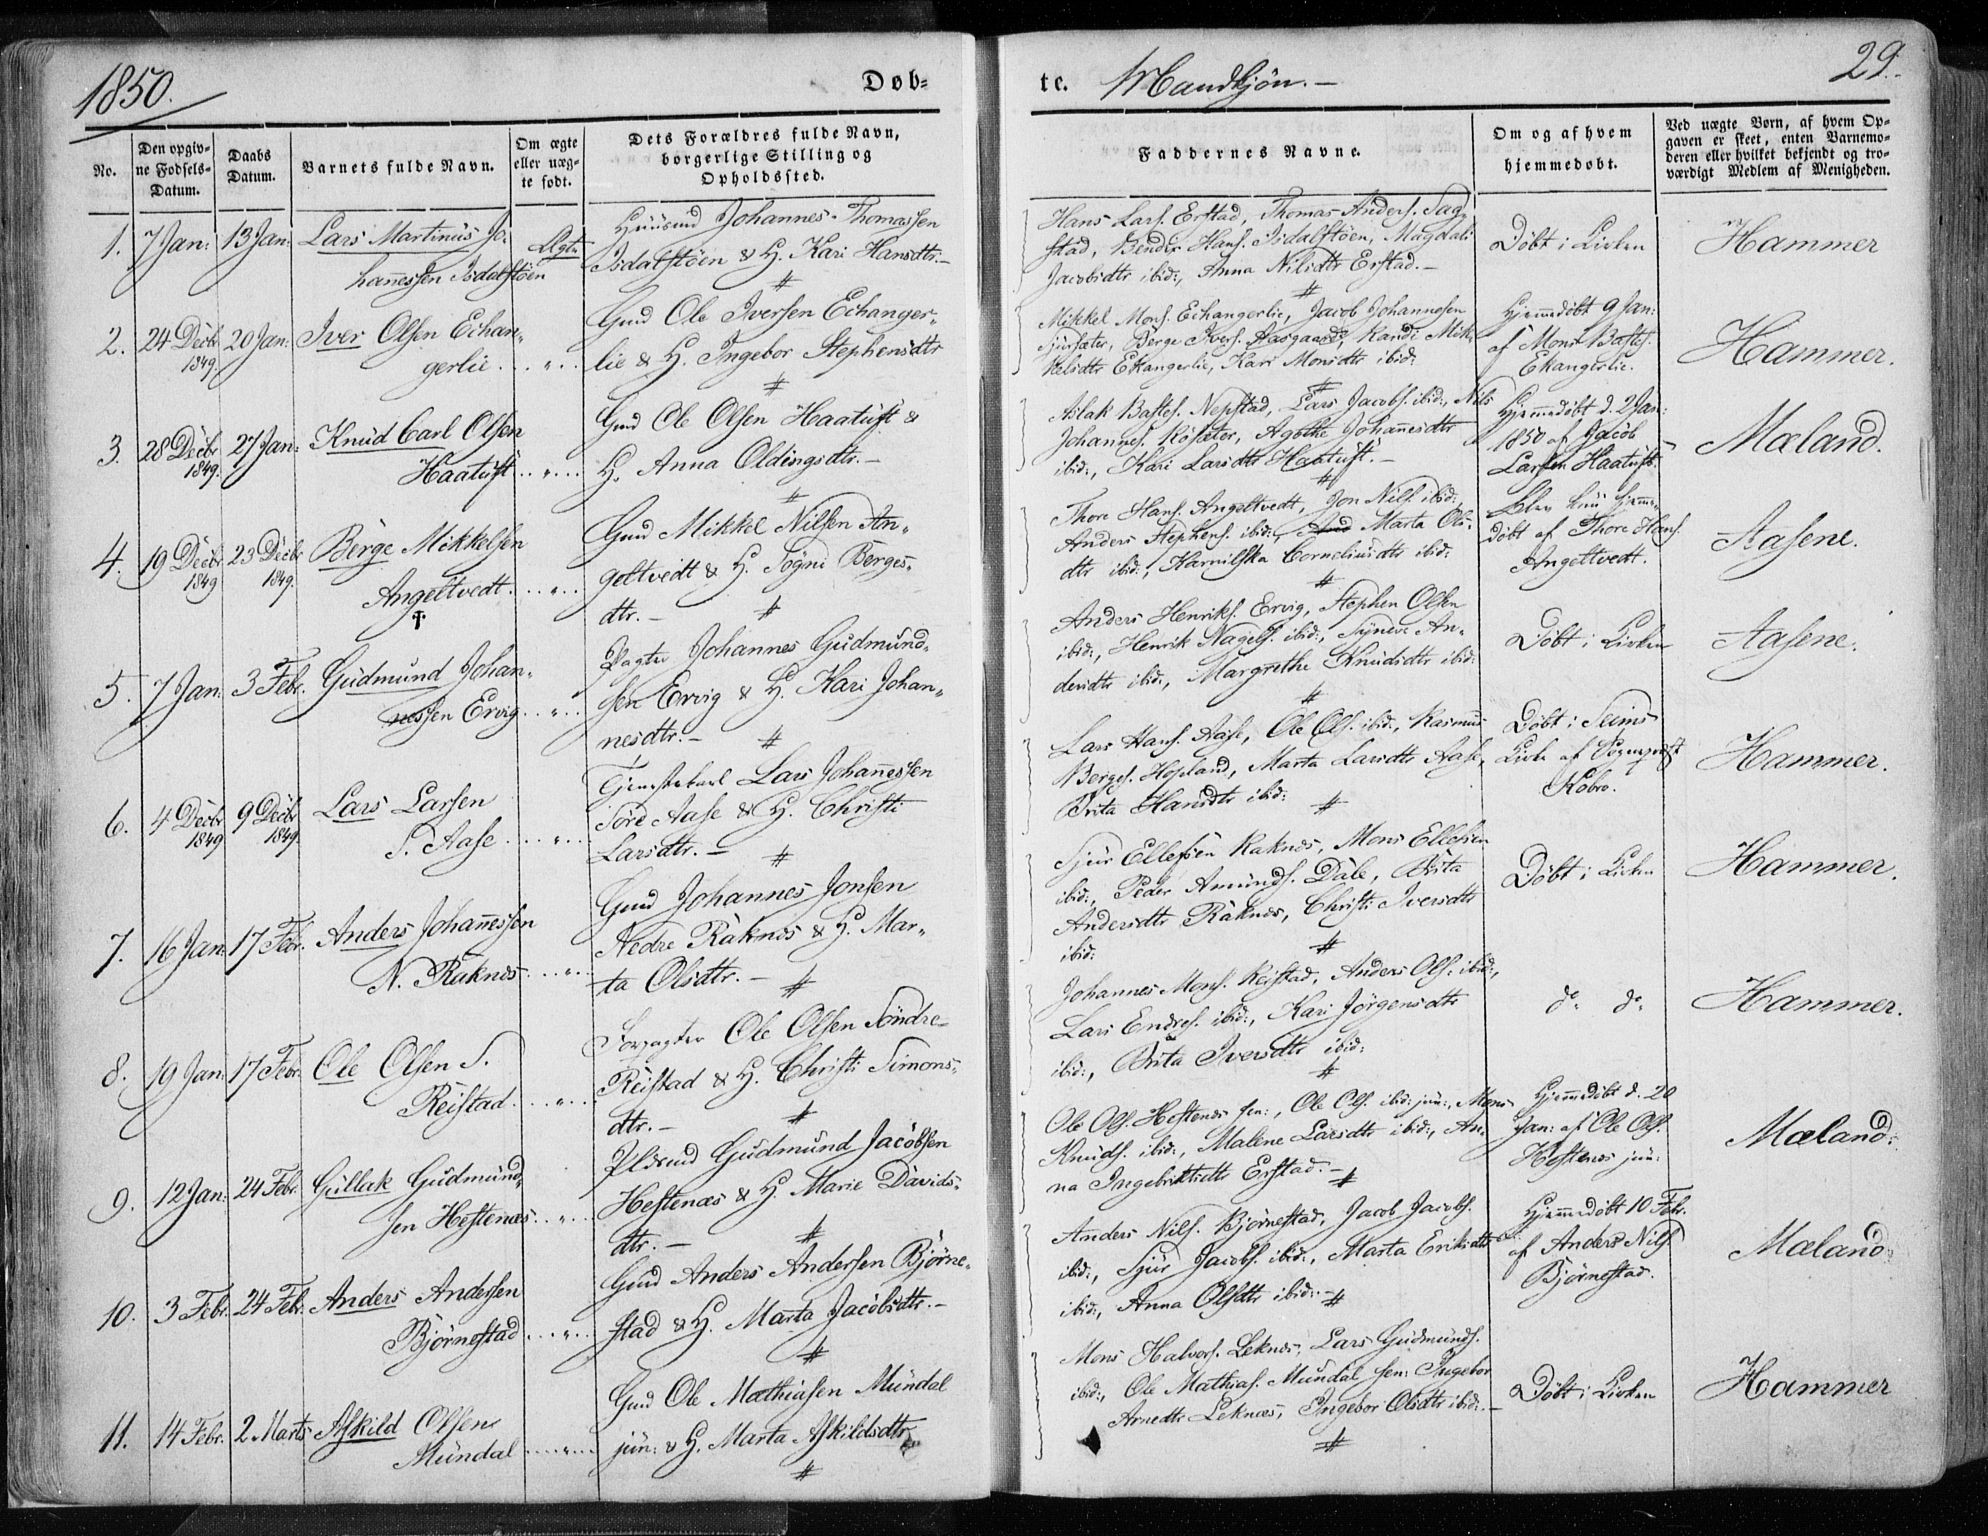 1850.
Døb-
te. Mandkjøn.-
29.
No.
Den opgiv-
ne Fødsels-
Datum.
Daabs
Datum.
Barnets fulde Navn.
Om ægte
eller uæg-
te født.
Dets Forældres fulde Navn,
borgerlige Stilling og
Opholdssted.
Faddernes Navne.
Om og af hvem
hjemmedøbt.
Ved uægte Børn, af hvem Op-
gaven er skeet, enten Barnemo-
deren eller hvilket bekjendt og tro-
værdigt Medlem af Menigheden.
1. 7 Jan: 13 Jan: Lars Martinus Jo-
hannessen Isdalstøen
Ægte
Huusmd Johannes Thomassen
Isdalstøen & H. Kari Hansdtr.-
Hans Lars. Erstad, Thomas Anders. Sag-
stad, Bendix Hans. Isdalstøen, Magdali
Jacobsdtr ibid:, Anna Nilsdtr Erstad.-
Døbt i Kirken
Hammer
2. 24 Decbr 1849 20 Jan: Iver Olsen Echan-
gerlie
Gmd Ole Iversen Echanger-
lie & H. Ingebor Stephensdtr
Mikkel Mons. Echangerlie, Jacob Johannesen
Børge Ivers. Aasgaard, Randi Mik-
kelsdtr Ekangerlie, Kari Monsdtr ibid:
Hjemmedøbt 9 Jan:
af Mons Bastes.
Ekangerlie.
Hammer.
3. 28 Decbr 1849. 27 Jan: Knud Carl Olsen
Haatuft
Gmd Ole Olsen Haatuft &
H. Anna Oldingsdtr.-
Aslak Bastes. Nepstad, Lars Jacobs. ibid:, Nils
Johannes. Røsæter, Agothe Johannesdtr
ibid:, Kari Larsdtr Haatuft.-
Hjemmedøbt d. 2 Jan:
1850 af Jacob
Larsen Haatuft.
Mæland.
4. 19 Decbr 1849 23 Decbr 1849. Børge Mikkelsen
Angeltvedt.
Gmd Mikkel Nilsen An-
geltvedt & H. Søgni Berges-
dtr.-
Thore Hans. Angeltvedt, Jon Nils. ibid:
Anders Stephens. ibid:, Marta Ols-
dtr ibid:, Karnilska Corneliusdtr ibid:
Blev kun hjemme-
døbt af Thore Hans.
Angeltvedt.
Aasene.
5. 7 Jan: 3 Febr. Gudmund Johan-
nessen Ervig
Pagter Johannes Gudmund-
sen Ervig & H. Kari Johan-
nesdtr.-
Anders Henriks. Ervig, Stephen Olsen
ibid:, Henrik Nagels. ibid:, Synneve An-
dersdtr ibid:, Margrethe Knudsdtr ibid:
Døbt i Kirken
Aasene.
6. 4 Decbr 1849 9 Decbr 1849. Lars Larsen
S. Aase
Tjenestekarl Lars Johannessen
Søre Aase & H. Christi
Larsdtr.-
Lars Hans. Aase, Ole Ols. ibid:, Rasmus
Berges. Hopland, Marta Larsdtr Aase,
Brita Hansdtr ibid:
Døbt i Seims
Kirke af Sognepræst
Kobro.
Hammer.
7. 16 Jan: 17 Febr. Anders Johannessen
N. Raknes
Gmd Johannes Jonsen
Nedre Raknes & H. Mar-
ta Olsdtr.-
Sjur Ellefsen Raknes, Mons Ellefsen
ibid:, Peder Amunds. Dale, Brita
Andersdtr Raknes, Christi Iversdtr
ibid:
Døbt i Kirken
Hammer.
8. 19 Jan: 17 Febr. Ole Olsen S.
Reistad
Ole Olsen Søndre-
Reistad & H. Christi Simons-
dtr.-
Johannes Mons. Reistad, Anders Ols. ibid:,
Lars Endres. ibid:, Kari Jørgensdtr
ibid:, Brita Iversdtr ibid:
do. do.
Hammer.
9. 12 Jan: 24 Febr. Gullak Gudmund-
sen Hestenæs
Gudmund Jacobsen
Hestenæs & H. Marie Davids-
dtr.-
Ole Ols. Hestenes sen:, Ole Ols. ibid: jun:, Mons
Knuds. ibid:, Malene Larsdtr ibid:, An-
na Ingebrittsdtr Erstad.-
Hjemmedøbt d. 20
Jan: af Ole Ols.
Hestenes jun:
Mæland.
10. 3 Febr. 24 Febr. Anders Andersen
Bjørnestad
Gmd Anders Andersen Bjørne-
stad & H. Marta Jacobsdtr.-
Anders Nils. Bjørnestad, Jacob Jacobs.
ibid:, Sjur Jacobs. ibid:, Marta Eriksdtr
ibid:, Anna Olsdtr ibid:-
Hjemmedøbt 10 Febr.
af Anders Nils.
Bjørnestad.
Mæland.
11. 14 Febr. 2 Marts Askild Olsen
Mundal
Gmd Ole Mathiasen Mundal
jun: & H. Marta Askildsdtr
Mons Halvors. Leknes, Lars Gudmunds.
ibid:, Ole Mathias. Mundal sen: Ingebor
Arnedtr Leknæs, Ingebor Olsdtr ibid:-
Døbt i Kirken
Hammer